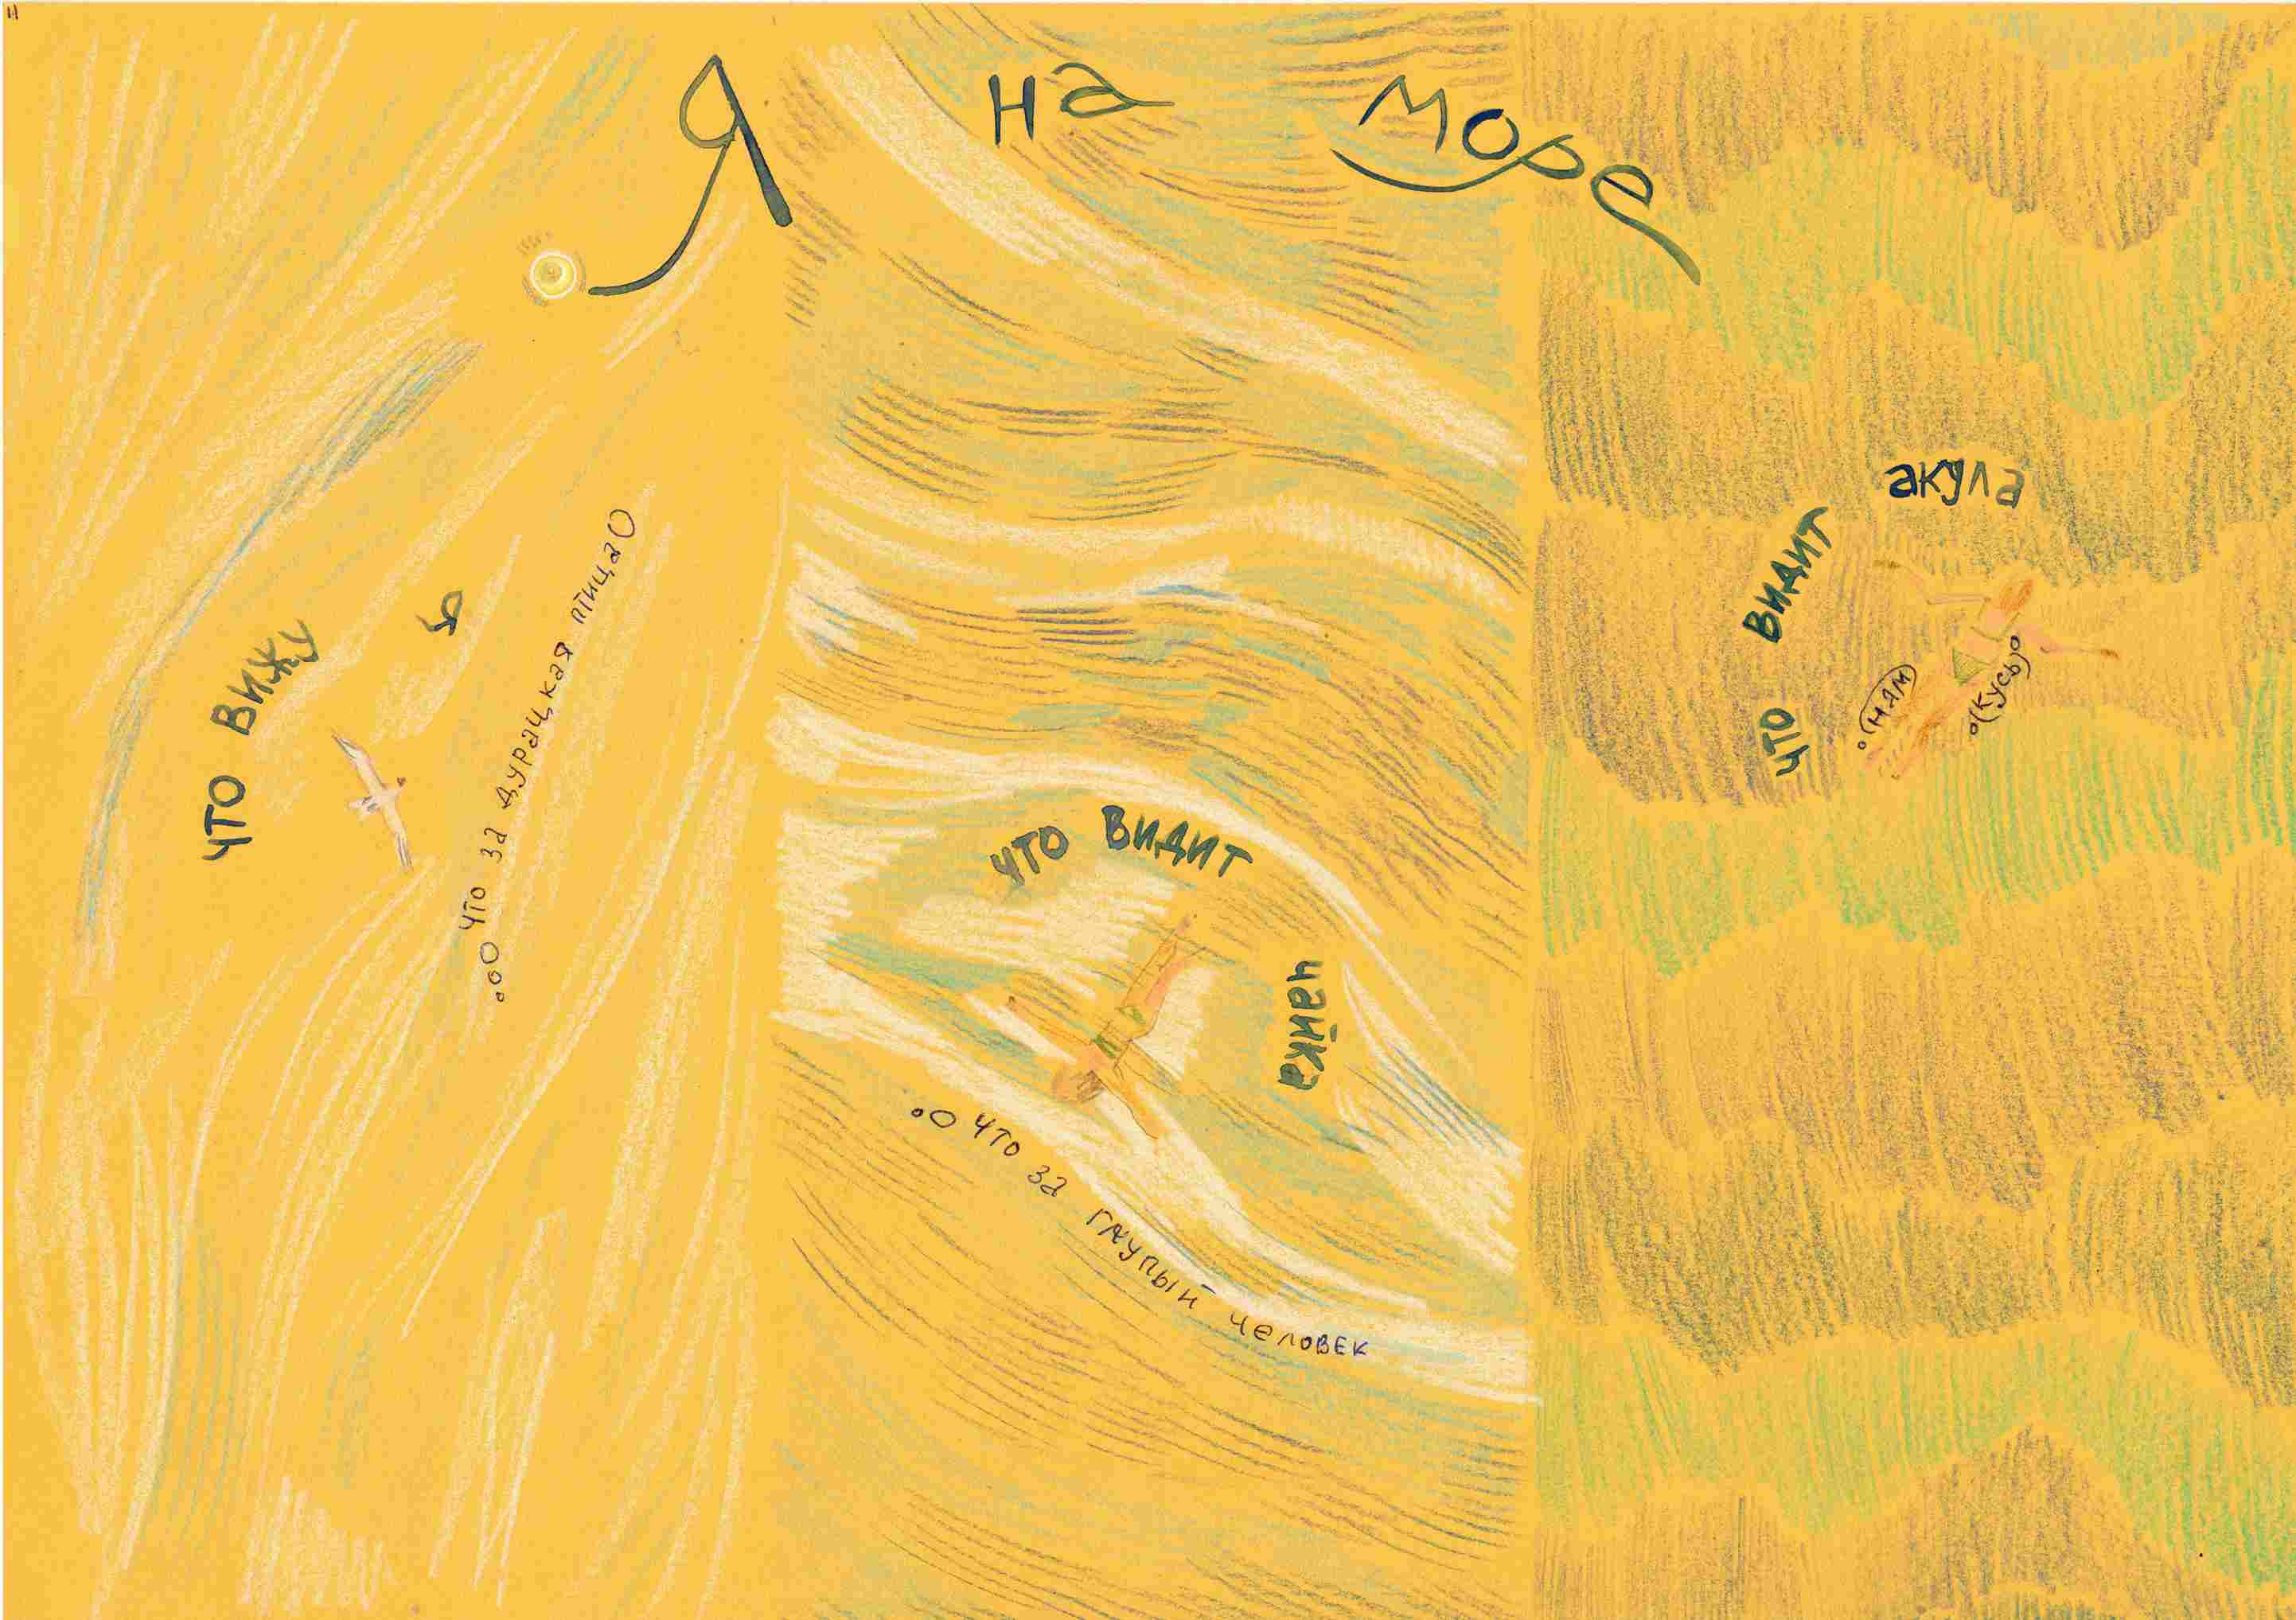 Я на море
что вижу
я
что за дурацкая птица
что видит
чайка
что за глупый человек
что видит
акула
ням
кусь